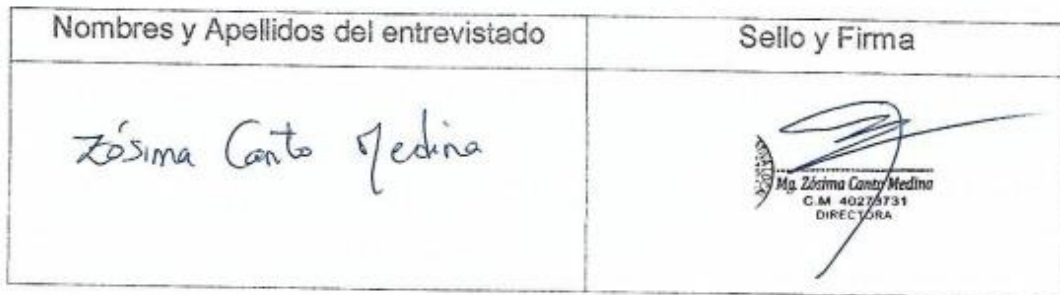 Nombres y Apellidos del entrevistado
Sello y Firma
Zósima Canto Medina
Mg. Zósima Canto Medina
C.M 40273731
DIRECTORA